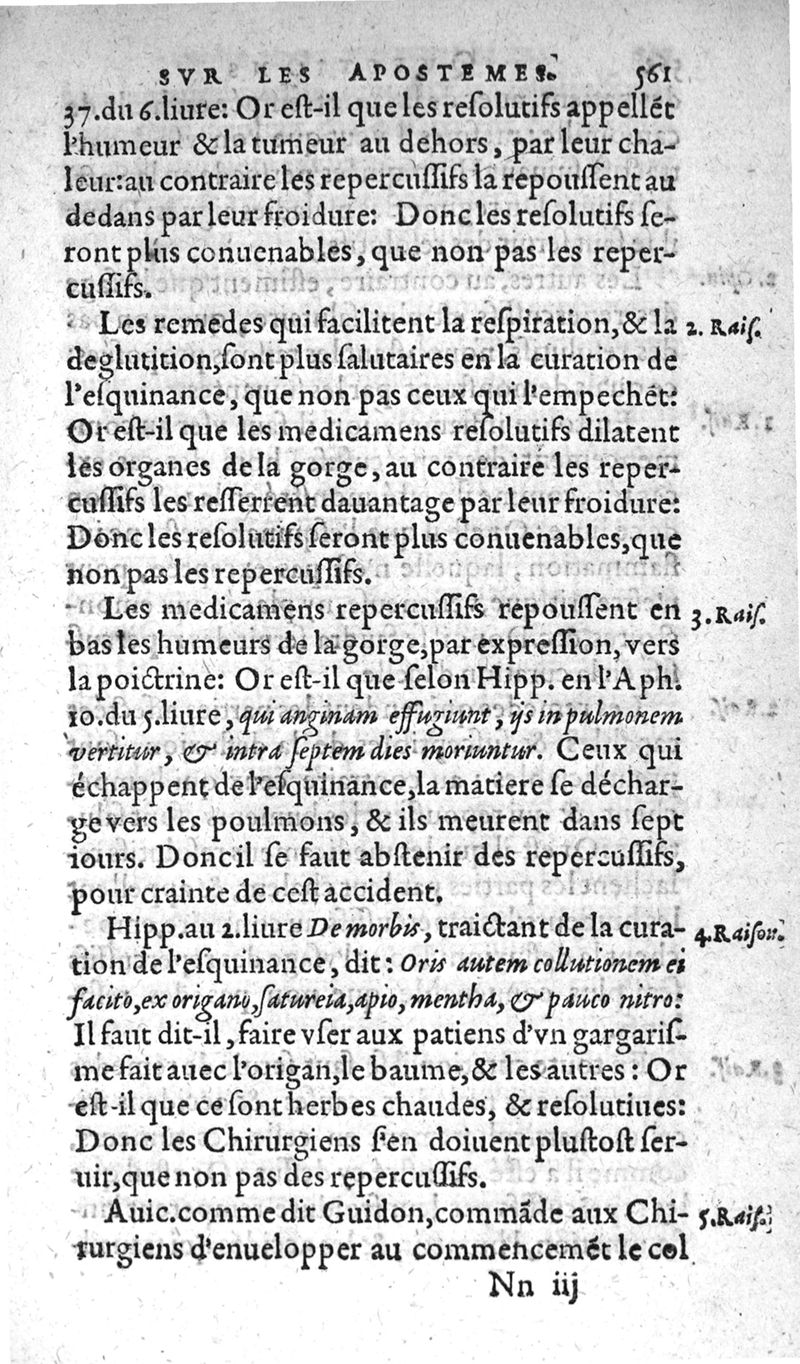 SVR LES APOSTEMES. 561
37.du 6.liure: Or eſt-il que les reſolutifs appellẽt
l'humeur & la tumeur au dehors, par leur cha-
leur: au contraire les repercuſſifs la repouſſent au
dedans par leur froidure: Donc les reſolutifs ſe-
ront plus conuenables, que non pas les reper-
cuſſifs.
Les remedes qui facilitent la reſpiration, & la 2. Raiſ.
deglutition, ſont plus ſalutaires en la curation de
l'eſquinance, que non pas ceux qui l'empechẽt:
Or eſt-il que les medicamens reſolutifs dilatent
les organes de la gorge, au contraire les reper-
cuſſifs les reſſerrent dauantage par leur froidure:
Donc les reſolutifs ſeront plus conuenables, que
non pas les repercuſſifs.
Les medicamens repercuſſifs repouſſent en 3. Raiſ.
bas les humeurs de la gorge, par expreſſion, vers
la poictrine: Or eſt-il que ſelon Hipp. en l'Aph.
10.du 5.liure, qui anginam effugiunt, ijs in pulmonem
vertitur, & intra ſeptem dies moriuntur. Ceux qui
échappent de l'eſquinance, la matiere ſe déchar-
ge vers les poulmons, & ils meurent dans ſept
iours. Donc il ſe faut abſtenir des repercuſſifs,
pour crainte de ceſt accident.
Hipp. au 2.liure De morbis, traictant de la cura- 4. Raiſon.
tion de l'eſquinance, dit: Oris autem collutionem ei
facito, ex origano, ſatureia, apio, mentha, & pauco nitro:
Il faut dit-il, faire vſer aux patiens d'vn gargariſ-
me fait auec l'origan, le baume, & les autres: Or
eſt-il que ce ſont herbes chaudes, & reſolutiues:
Donc les Chirurgiens ſ'en doiuent pluſtoſt ſer-
uir, que non pas des repercuſſifs.
Auic. comme dit Guidon, commãde aux Chi- 5. Raiſ.
rurgiens d'enuelopper au commencemẽt le col
Nn iij